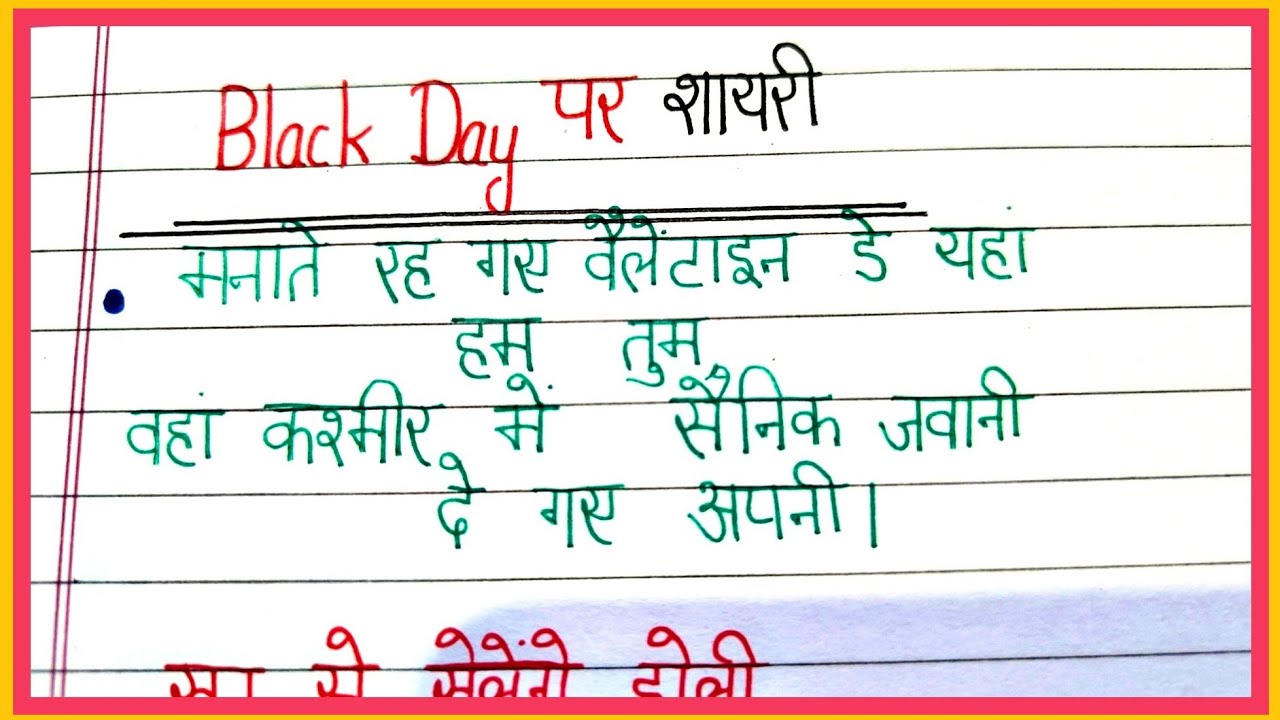 Black Day पर शायरी
मनाते रह गए वैलेंटाइन डे यहां
हम तुम
वहां कश्मीर में सैनिक जवानी
दे गए अपनी।
से